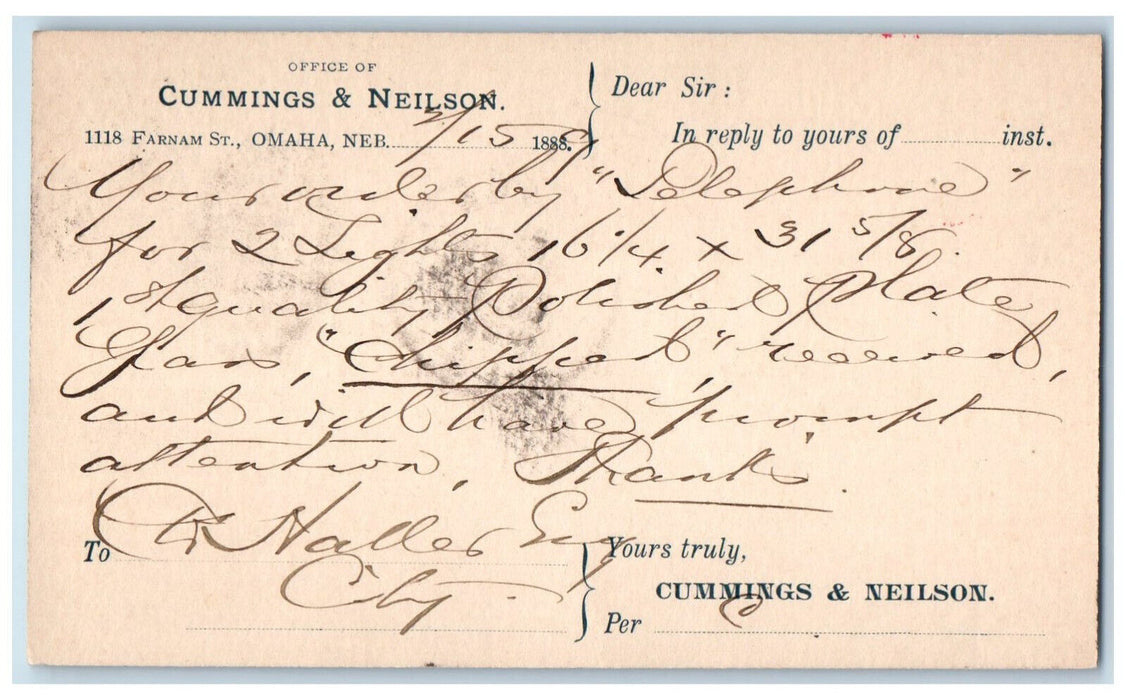 OFFICE OF
CUMMINGS & NEILSON.
1118 FARNAM ST., OMAHA, NEB. 2/15 1889
Dear Sir :
In reply to yours of inst.
Your order by "Telephone"
for 2 Lights 16 1/4 x 31 5/8
1st quality Polished Plate
Glass, "Chipped" received,
and will have prompt
attention, Thanks.
To Haller Esq
City.
Yours truly,
CUMMINGS & NEILSON.
Per C